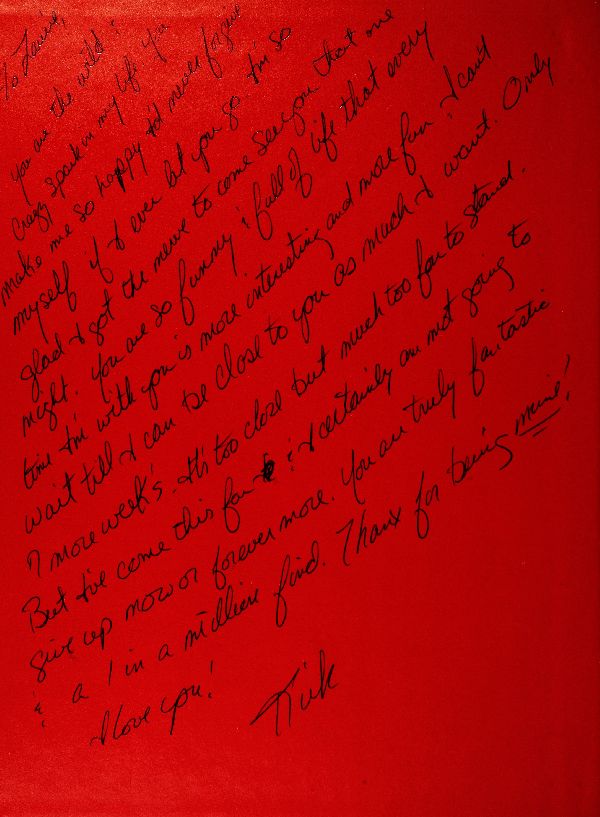 To Laurie,
You are the wild &
crazy spark in my life. You
make me so happy & I'd never forgive
myself if I ever let you go. I'm so
glad I got the nerve to come see you that one
night. You are so funny & full of life that every
time I'm with you is more interesting and more fun. I can't
wait till I can be close to you as much I want. Only
7 more week's. It's too close but much too far to stand.
But I've come this far & I certainly am not going to
give up now or forever more. You are truly fantastic
& a 1 in a million find. Thanx for being mine!
I love you!